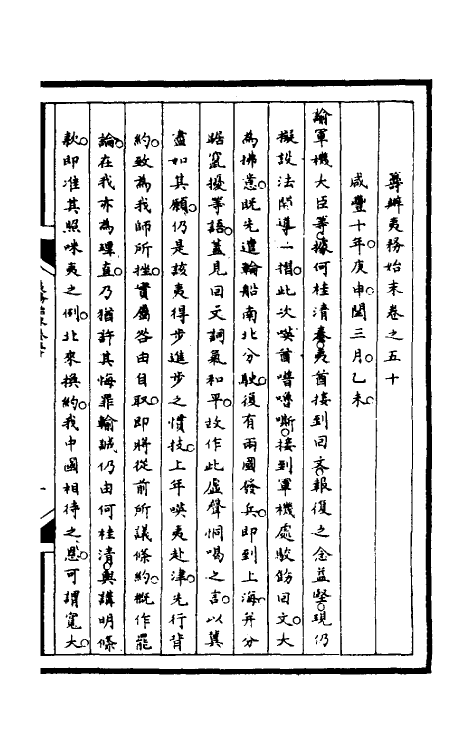 籌辦夷務始末卷之五十
咸豐十年庚申閏三月乙未
諭軍機大臣等據何桂清奏夷酋接到回文報復之念益堅現仍
擬設法開導一摺此次㗎酋嚕嘶接到軍機處駁飭回文大
為拂意既先遣輪船南北分駛復有兩國發兵即到上海并分
踞竄擾等語蓋見回文詞氣和平故作此虛聲恫喝之言以冀
盡如其願仍是該夷得步進步之慣技上年㗎夷赴津先行背
約致為我師所挫實屬咎由自取即將從前所議條約概作罷
論在我亦為理直乃猶許其悔罪輸誠仍由何桂清與講明條
款即准其照咪夷之例北來換約我中國相待之恩可謂寬大